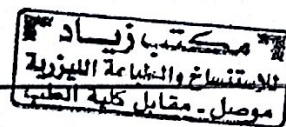 مكتب زياد
للاستنساخ والطباعة الليزرية
موصل - مقابل كلية الطب